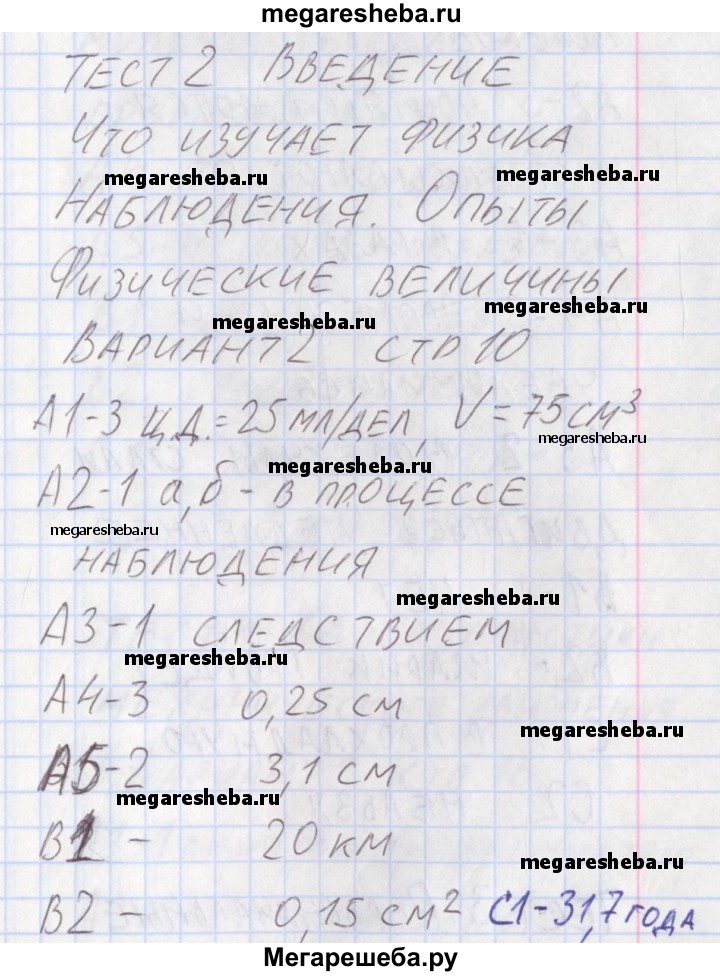 megaresheba.ru
ТЕСТ 2 ВВЕДЕНИЕ
ЧТО ИЗУЧАЕТ ФИЗИКА
megaresheba.ru megaresheba.ru
НАБЛЮДЕНИЯ. ОПЫТЫ
ФИЗИЧЕСКИЕ ВЕЛИЧИНЫ
megaresheba.ru megaresheba.ru
ВАРИАНТ 2 СТР 10
А1-3 Ц.Д.=25МЛ/ДЕЛ, V=75СМ³
megaresheba.ru
megaresheba.ru
А2-1 а,б - В ПРОЦЕССЕ
megaresheba.ru
НАБЛЮДЕНИЯ
megaresheba.ru
А3-1 СЛЕДСТВИЕМ
megaresheba.ru
А4-3 0,25 СМ
megaresheba.ru
А5-2 3,1 СМ
megaresheba.ru
В1 - 20 КМ
megaresheba.ru
В2 - 0,15 СМ² С1-31,7 ГОДА
Мегарешеба.ру